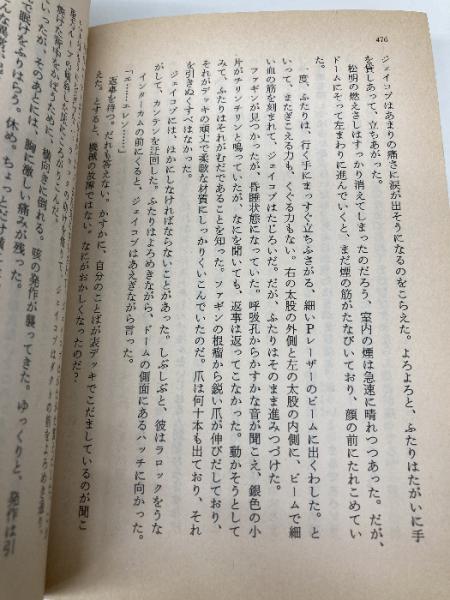 476
ジェイコブはあまりの痛さに涙が出そうになるのをこらえた。よろよろと、ふたりはたがいに手
を貸しあって、立ちあがった。
松明の燃えさしはすっかり消えてしまったのだろう、室内の煙は急速に晴れつつあった。だが、
ドームにそって左まわりに進んでいくと、まだ煙の筋がたなびいており、顔の前にたれこめてい
た。
一度、ふたりは、行く手にまっすぐ立ちふさがる、細いPレーザーのビームに出くわした。と
いって、またぎこえる力も、くぐる力もない。右の太股の外側と左の太股の内側に、ビームで細
い血の筋を刻まれて、ジェイコブはたじろいだ。だが、ふたりはそのまま進みつづけた。
ファギンが見つかったが、昏睡状態になっていた。呼吸孔からかすかな音が聞こえ、銀色の小
片がチリンチリンと鳴っていたが、なにを聞いても、返事は返ってこなかった。動かそうとして
みて、ふたりはそれがむだであることを知った。ファギンの根瘤から鋭い爪が伸びだしており、
それがデッキの頑丈で柔軟な材質にしっかりくいこんでいたのだ。爪は何十本も出ており、それ
を引きぬくすべはなかった。
ジェイコブには、ほかにしなければならないことがあった。しぶしぶと、彼はラロックをうな
がして、カンテンを迂回した。ふたりはよろめきながら、ドームの側面にあるハッチに向かった。
インターカムの前にくると、ジェイコブはあえぎながら言った。
「ヘ……ヘレン……」
返事を待つ。だれも答えない。かすかに、自分のことばが表デッキでこだましているのが聞こ
えた。とすると、機械の故障ではない。なにがおかしくなったのだ？
いったが、そのあとには、胸に激しい痛みが残った。
横向きに倒れる。咳の発作が襲ってきた。ゆっくりと、発作は引
で眠けをふりはらう。休め、ちょっとだけ